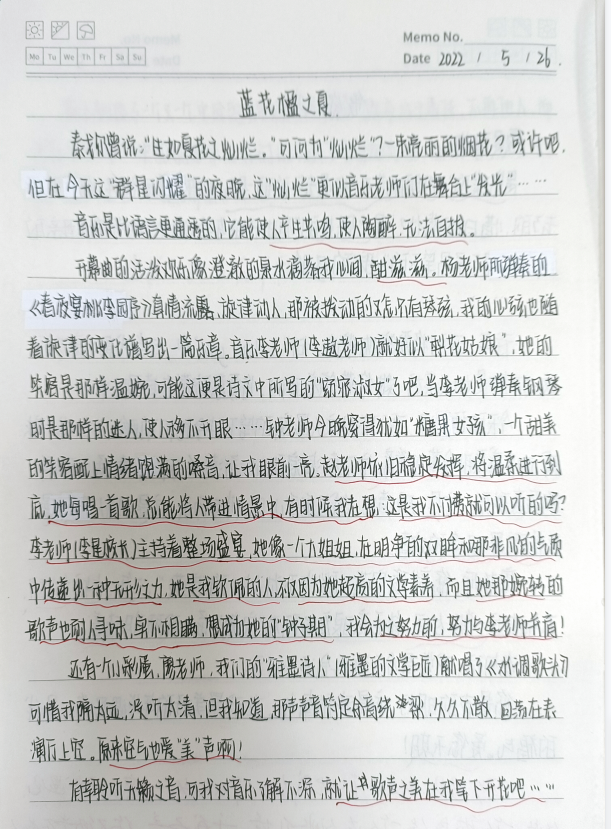 Memo No.
Mo Tu We Th Fr Sa Su
Date 2022 / 5 / 26.
蓝花楹之夏
泰戈尔曾说:“生如夏花之灿烂。”可何为“灿烂”?一朵亮丽的烟花?或许吧,
但在今天这“群星闪耀”的夜晚,这“灿烂”更似音乐老师们在舞台上“发光”……
音乐是比语言更通透的,它能使人产生共鸣,使人陶醉,无法自拔。
开幕曲的活泼欢乐像澄澈的泉水滴荡我心间,甜滋滋。杨老师所弹奏的
《春夜宴桃李园序》真情流露,旋律动人,那被拨动的难道只有琴弦,我的心弦也随
着旋律的变化谱写出一篇乐章。音乐李老师(李璇老师)就好似“梨花姑娘”,她的
笑容是那样温婉,可能这便是诗文中所写的“窈窕淑女”了吧,当李老师弹奏钢琴
时是那样的迷人,使人移不开眼……与钟老师今晚穿得犹如“糖果女孩”,一个甜美
的笑容配上情绪饱满的嗓音,让我眼前一亮。赵老师依旧稳定发挥,将温柔进行到
底,她每唱一首歌,总能将人带进情景中,有时候我在想:这是我不付费就可以听的吗?
李老师(李星成长)主持着整场盛宴,她像一个大姐姐,在明净的双眸和那非凡的气质
中传递出一种无形之力,她是我钦佩的人,不仅因为她极高的文学素养,而且她那婉转的
歌声也耐人寻味,实不相瞒,想成为她的“钟子期”,我会为之努力的,努力与李老师并肩!
还有个小彩蛋,周老师,我们的“雅墨诗人”(雅墨的文学巨匠)献唱了《水调歌头》
可惜我隔太远,没听太清,但我知道,那声声音符定余音绕梁,久久不散,回荡在表
演厅上空。原来匠与也爱“美”声啊!
有幸聆听天籁之音,可我对音乐了解不深,就让歌声之美在我笔下开花吧……